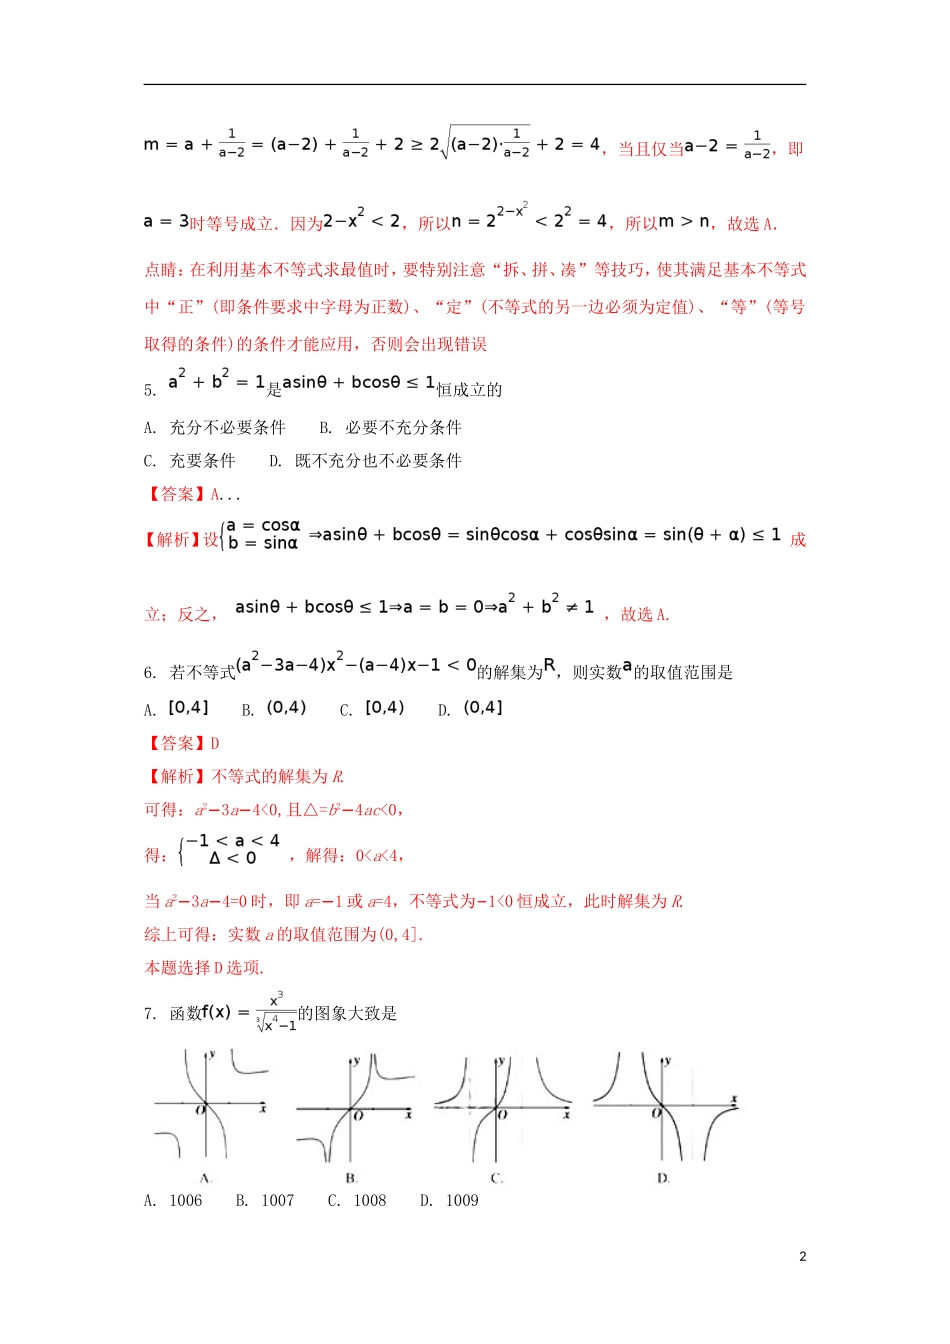 m = a + 1/(a−2) = (a−2) + 1/(a−2) + 2 ≥ 2√((a−2)·1/(a−2)) + 2 = 4，当且仅当a−2 = 1/(a−2)，即
a = 3时等号成立．因为2−x² < 2，所以n = 2^(2−x²) < 2² = 4，所以m > n，故选 A．
点睛：在利用基本不等式求最值时，要特别注意“拆、拼、凑”等技巧，使其满足基本不等式
中“正”(即条件要求中字母为正数)、“定”(不等式的另一边必须为定值)、“等”(等号
取得的条件)的条件才能应用，否则会出现错误
5. a² + b² = 1是asinθ + bcosθ ≤ 1恒成立的
A. 充分不必要条件 B. 必要不充分条件
C. 充要条件 D. 既不充分也不必要条件
【答案】A...
【解析】设{a = cosα b = sinα ⇒asinθ + bcosθ = sinθcosα + cosθsinα = sin(θ + α) ≤ 1 成
立；反之， asinθ + bcosθ ≤ 1⇒a = b = 0⇒a² + b² ≠ 1 ，故选 A.
6. 若不等式(a²−3a−4)x²−(a−4)x−1 < 0的解集为R，则实数a的取值范围是
A. [0,4] B. (0,4) C. [0,4) D. (0,4]
【答案】D
【解析】不等式的解集为 R.
可得：a²−3a−4<0,且△=b²−4ac<0，
得：{−1 < a < 4 Δ < 0 ，解得：0<a<4，
当 a²−3a−4=0 时，即 a=−1 或 a=4，不等式为−1<0 恒成立，此时解集为 R.
综上可得：实数 a 的取值范围为(0,4].
本题选择 D 选项.
7. 函数f(x) = x³/∛(x⁴−1)的图象大致是
y y y y
O x O x O x O x
A. B. C. D.
A. 1006 B. 1007 C. 1008 D. 1009
2